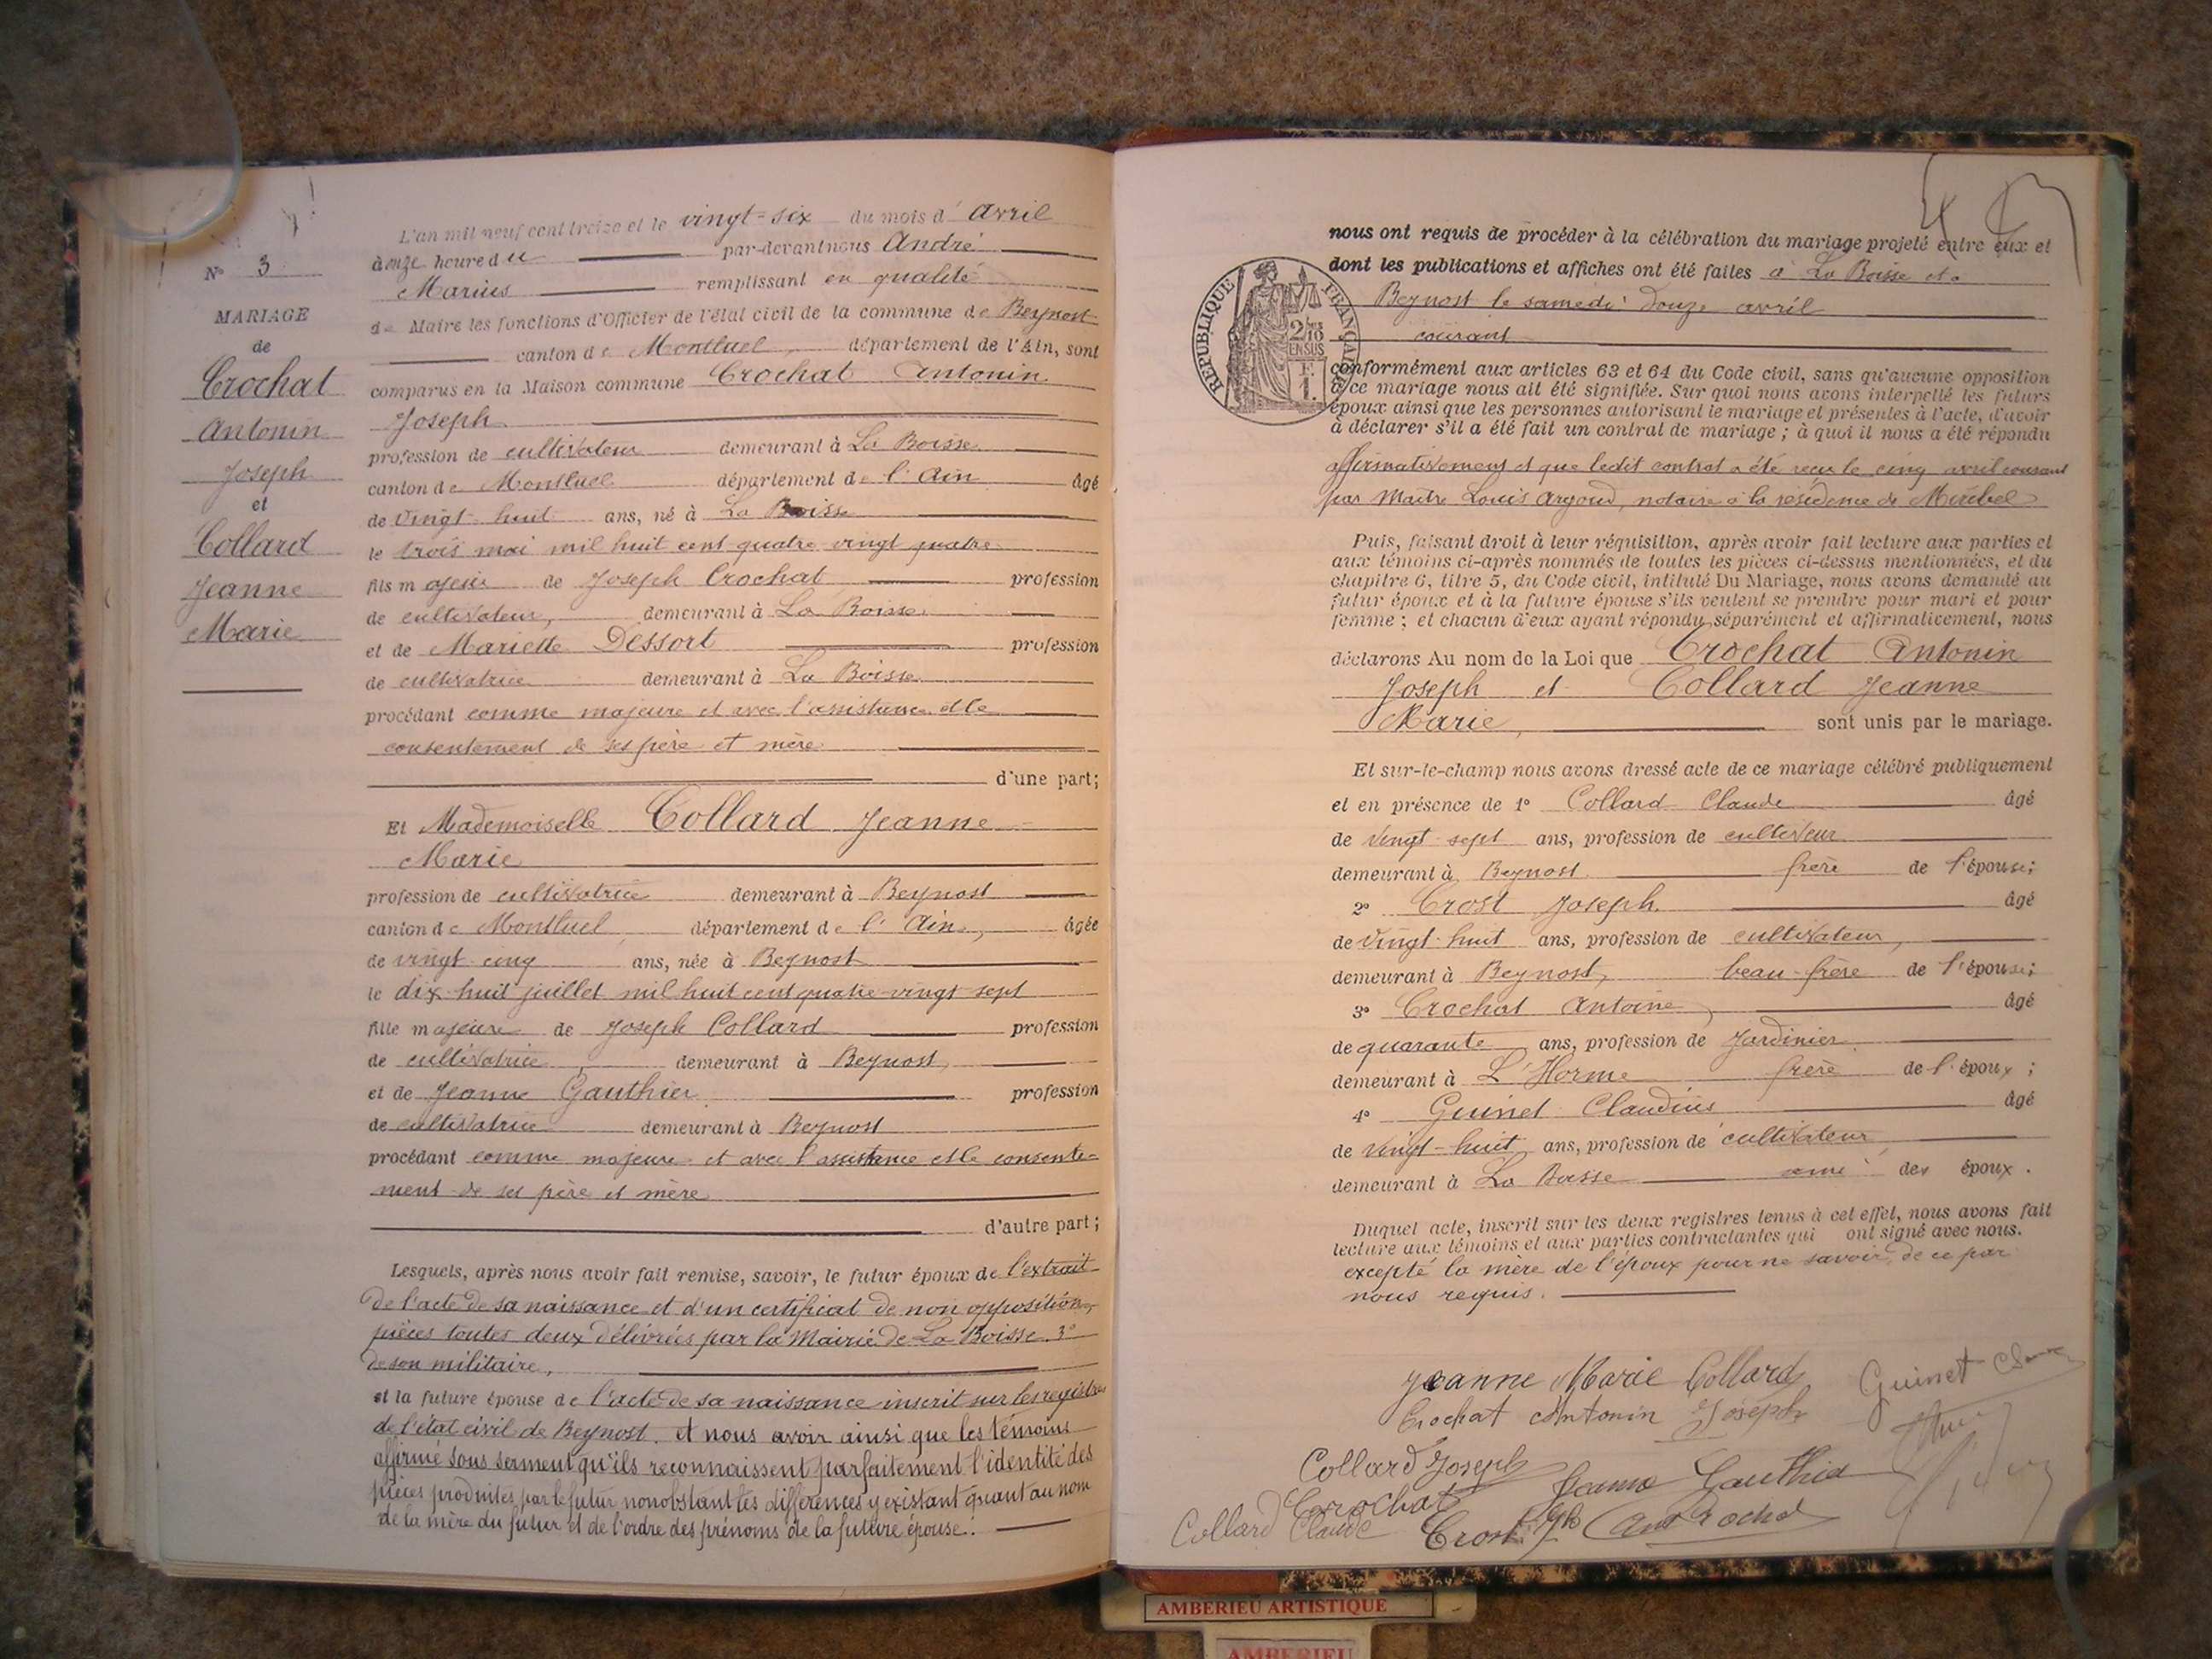 N° 3
MARIAGE
de
Crochat
Antonin
Joseph
et
Collard
Jeanne
Marie
L'an mil neuf cent treize et le vingt-six du mois d' Avril
à onze heure du par-devant nous André
Marius remplissant en qualité
de Maire les fonctions d'Officier de l'état civil de la commune de Beynost
canton de Montluel, département de l'Ain, sont
comparus en la Maison commune Crochat Antonin
Joseph
profession de cultivateur demeurant à La Boisse
canton de Montluel département de l'Ain âgé
de vingt-huit ans, né à La Boisse
le trois mai mil huit cent quatre vingt quatre
fils majeur de Joseph Crochat profession
de cultivateur, demeurant à La Boisse
et de Mariette Dessort profession
de cultivatrice demeurant à La Boisse
procédant comme majeure et avec l'assistance et le
consentement de ses père et mère
d'une part;
Et Mademoiselle Collard Jeanne
Marie
profession de cultivatrice demeurant à Beynost
canton de Montluel département de l'Ain, âgée
de vingt cinq ans, née à Beynost
le dix-huit juillet mil huit cent quatre-vingt-sept
fille majeure de Joseph Collard profession
de cultivatrice demeurant à Beynost,
et de Jeanne Gauthier profession
de cultivatrice demeurant à Beynost
procédant comme majeure et avec l'assistance et le consente-
ment de ses père et mère
d'autre part;
Lesquels, après nous avoir fait remise, savoir, le futur époux de l'extrait
de l'acte de sa naissance et d'un certificat de non opposition,
pièces toutes deux délivrées par la Mairie de La Boisse. 3°
de son militaire,
et la future épouse de l'acte de sa naissance inscrit sur les registres
de l'état civil de Beynost. et nous avoir ainsi que les témoins
affirmé sous serment qu'ils reconnaissent parfaitement l'identité des
pièces produites par le futur nonobstant les différences y existant quant au nom
de la mère du futur et de l'ordre des prénoms de la future épouse.
nous ont requis de procéder à la célébration du mariage projeté entre eux et
dont les publications et affiches ont été faites à La Boisse et à
Beynost le samedi douze avril
courant
RÉPUBLIQUE FRANÇAISE
2/10 EN SUS
F. 1.
conformément aux articles 63 et 64 du Code civil, sans qu'aucune opposition
à ce mariage nous ait été signifiée. Sur quoi nous avons interpellé les futurs
époux ainsi que les personnes autorisant le mariage et présentes à l'acte, d'avoir
à déclarer s'il a été fait un contrat de mariage ; à quoi il nous a été répondu
affirmativement et que ledit contrat a été reçu le cinq avril courant
par Maître Louis Argoud, notaire à la résidence de Miribel
Puis, faisant droit à leur réquisition, après avoir fait lecture aux parties et
aux témoins ci-après nommés de toutes les pièces ci-dessus mentionnées, et du
chapitre 6, titre 5, du Code civil, intitulé Du Mariage, nous avons demandé au
futur époux et à la future épouse s'ils veulent se prendre pour mari et pour
femme ; et chacun d'eux ayant répondu séparément et affirmativement, nous
déclarons Au nom de la Loi que Crochat Antonin
Joseph et Collard Jeanne
Marie, sont unis par le mariage.
Et sur-le-champ nous avons dressé acte de ce mariage célébré publiquement
et en présence de 1° Collard Claude âgé
de vingt-sept ans, profession de cultiveur
demeurant à Beynost frère de l'épouse;
2° Crost Joseph. âgé
de vingt-huit ans, profession de cultivateur,
demeurant à Beynost, beau-frère de l'épouse;
3° Crochat Antoine, âgé
de quarante ans, profession de Jardinier
demeurant à L'Horme frère de l'époux ;
4° Guinet Claudius âgé
de vingt-huit ans, profession de cultivateur,
demeurant à La Boisse ami des époux.
Duquel acte, inscrit sur les deux registres tenus à cet effet, nous avons fait
lecture aux témoins et aux parties contractantes qui ont signé avec nous.
excepté la mère de l'époux pour ne savoir, de ce par
nous requis.
Jeanne Marie Collard
Guinet
Crochat Antonin Joseph
Collard Joseph
Jeanne Gauthier
Crochat
Collard Claude
Crost Jph
Ant Crochat
AMBERIEU ARTISTIQUE
AMBERIEU